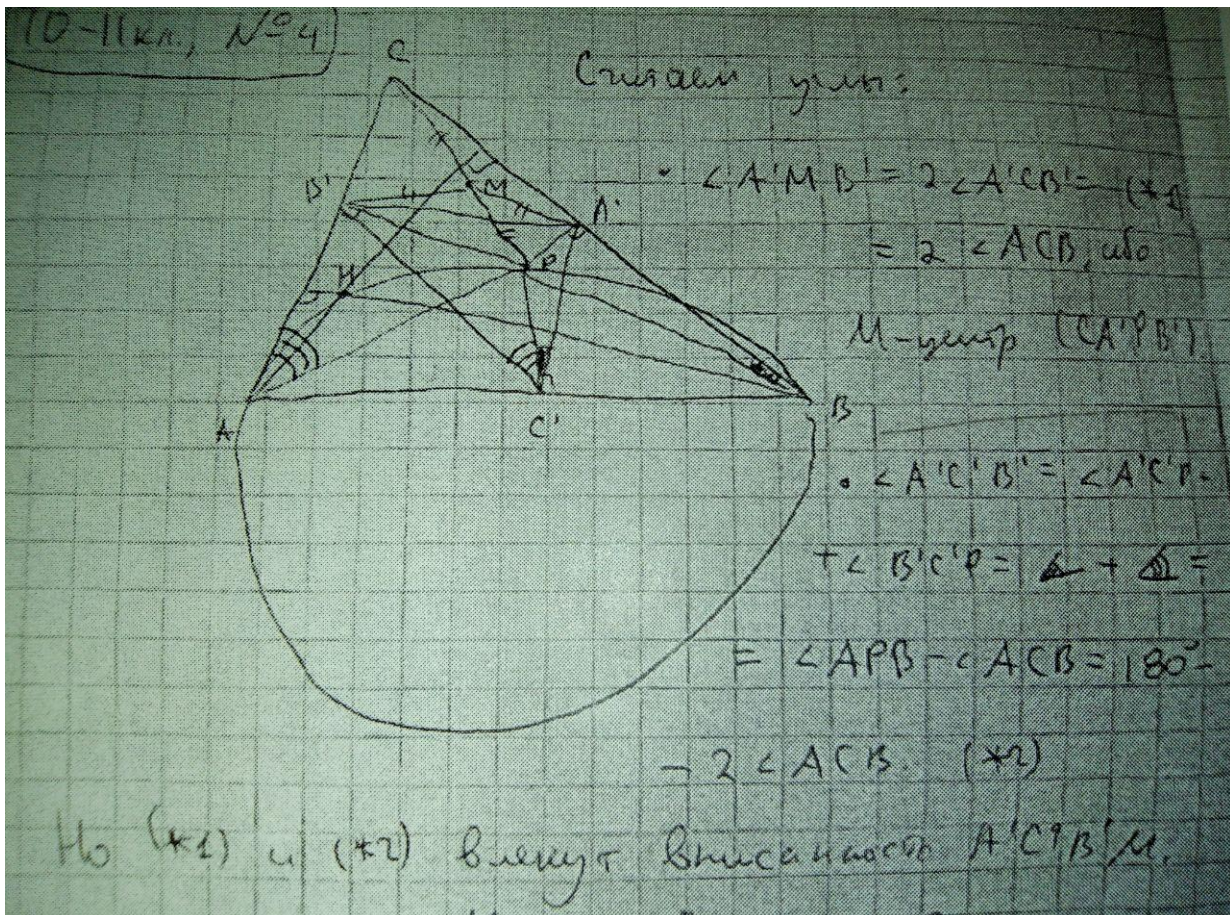 10-11кл., №4
C
Считаем углы:
B'
M
A'
· ∠A'MB' = 2∠A'CB' = (*1)
= 2∠ACB, ибо
H
P
M-центр (CA'PB').
A
C'
B
· ∠A'C'B' = ∠A'C'P
+∠B'C'P = + =
= ∠APB - ∠ACB = 180° -
- 2∠ACB. (*2)
Но (*1) и (*2) влекут вписанность A'C'B'M.